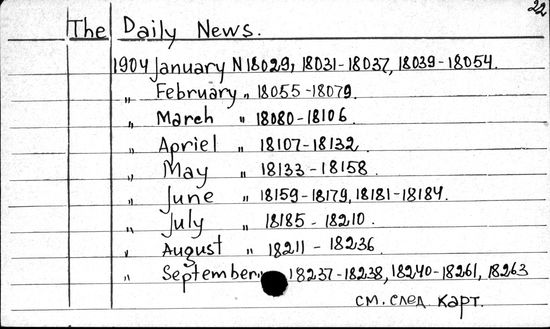 22
The Daily News.
1904 January N 18029, 18031-18037, 18039-18054.
„ February „ 18055-18079.
„ March „ 18080-18106.
„ Apriel „ 18107-18132.
„ May „ 18133-18158.
„ June „ 18159-18179, 18181-18184.
„ July „ 18185 - 18210.
„ August „ 18211 - 18236.
„ September „ 18237-18238, 18240-18261, 18263
см. след. карт.